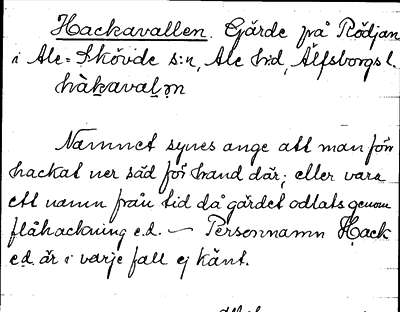 Hackavallen. Gärde på Rödjan
i Ale-Skövde s:n, Ale hd, Älfsborgs l.
hàkaval̥n̥
Namnet synes ange att man förr
hackat ner säd för hand där; eller vara
ett namn från tid då gärdet odlats genom
flåhackning e.d. — Personnamn Hack
e.d. är i varje fall ej känt.